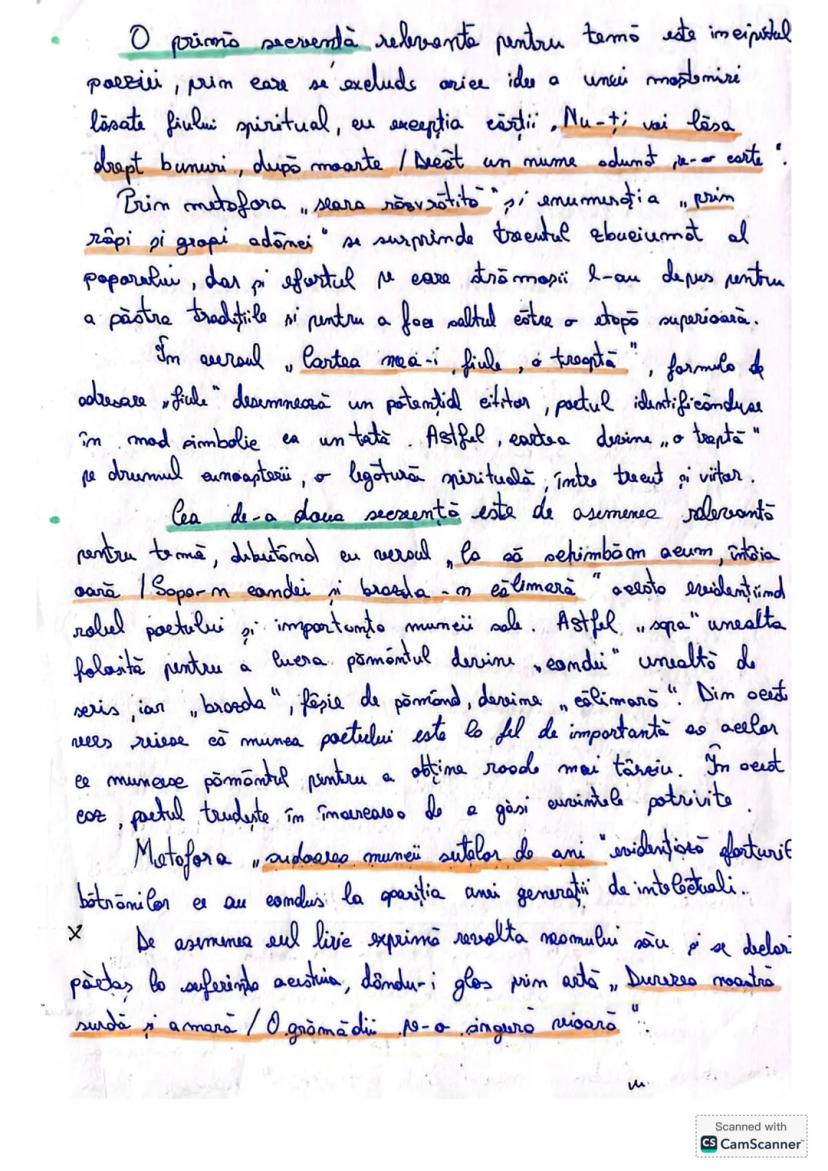 O primă secvență relevantă pentru temă este incipitul
poeziei, prin care se exclude orice idee a unei moșteniri
lăsate fiului spiritual, cu excepția cărții „Nu-ți voi lăsa
drept bunuri, după moarte / Decât un nume adunat pe-o carte".
Prin metafora „seara răzvrătită" și enumerația „prin
râpi și gropi adânci" se surprinde trecutul zbuciumat al
poporului, dar și efortul pe care strămoșii l-au depus pentru
a păstra tradițiile și pentru a face saltul către o etapă superioară.
În versul „Cartea mea-i, fiule, o treaptă", formula de
adresare „fiule" desemnează un potențial cititor, poetul identificânduse
în mod simbolic ca un tată. Astfel, cartea devine „o treptă"
pe drumul cunoașterii, o legătură spirituală, între trecut și viitor.
Cea de-a doua secvență este de asemenea relevantă
pentru temă, debutând cu versul „Ca să schimbăm acum, întâia
oară / Sapa-n condei și brazda-n călimară" acesta evidențiind
rolul poetului și importanța muncii sale. Astfel „sapa" unealta
folosită pentru a lucra pământul devine „condei" unealtă de
scris, iar „brazda", fâșie de pământ, devine „călimară". Din acest
vers reiese că munca poetului este la fel de importantă ca acelor
ce muncesc pământul pentru a obține roade mai târziu. În acest
caz, poetul trudește în încercarea de a găsi cuvintele potrivite.
Metafora „sudoarea muncii sutelor de ani" evidențiază eforturile
bătrânilor ce au condus la apariția unei generații de intelectuali.
x De asemenea eul liric exprimă revolta neamului său și se declară
părtaș la suferința acestuia, dându-i glas prin artă „Durerea noastră
surdă și amară / O grămădii pe-o singură vioară".
Scanned with
CS CamScanner